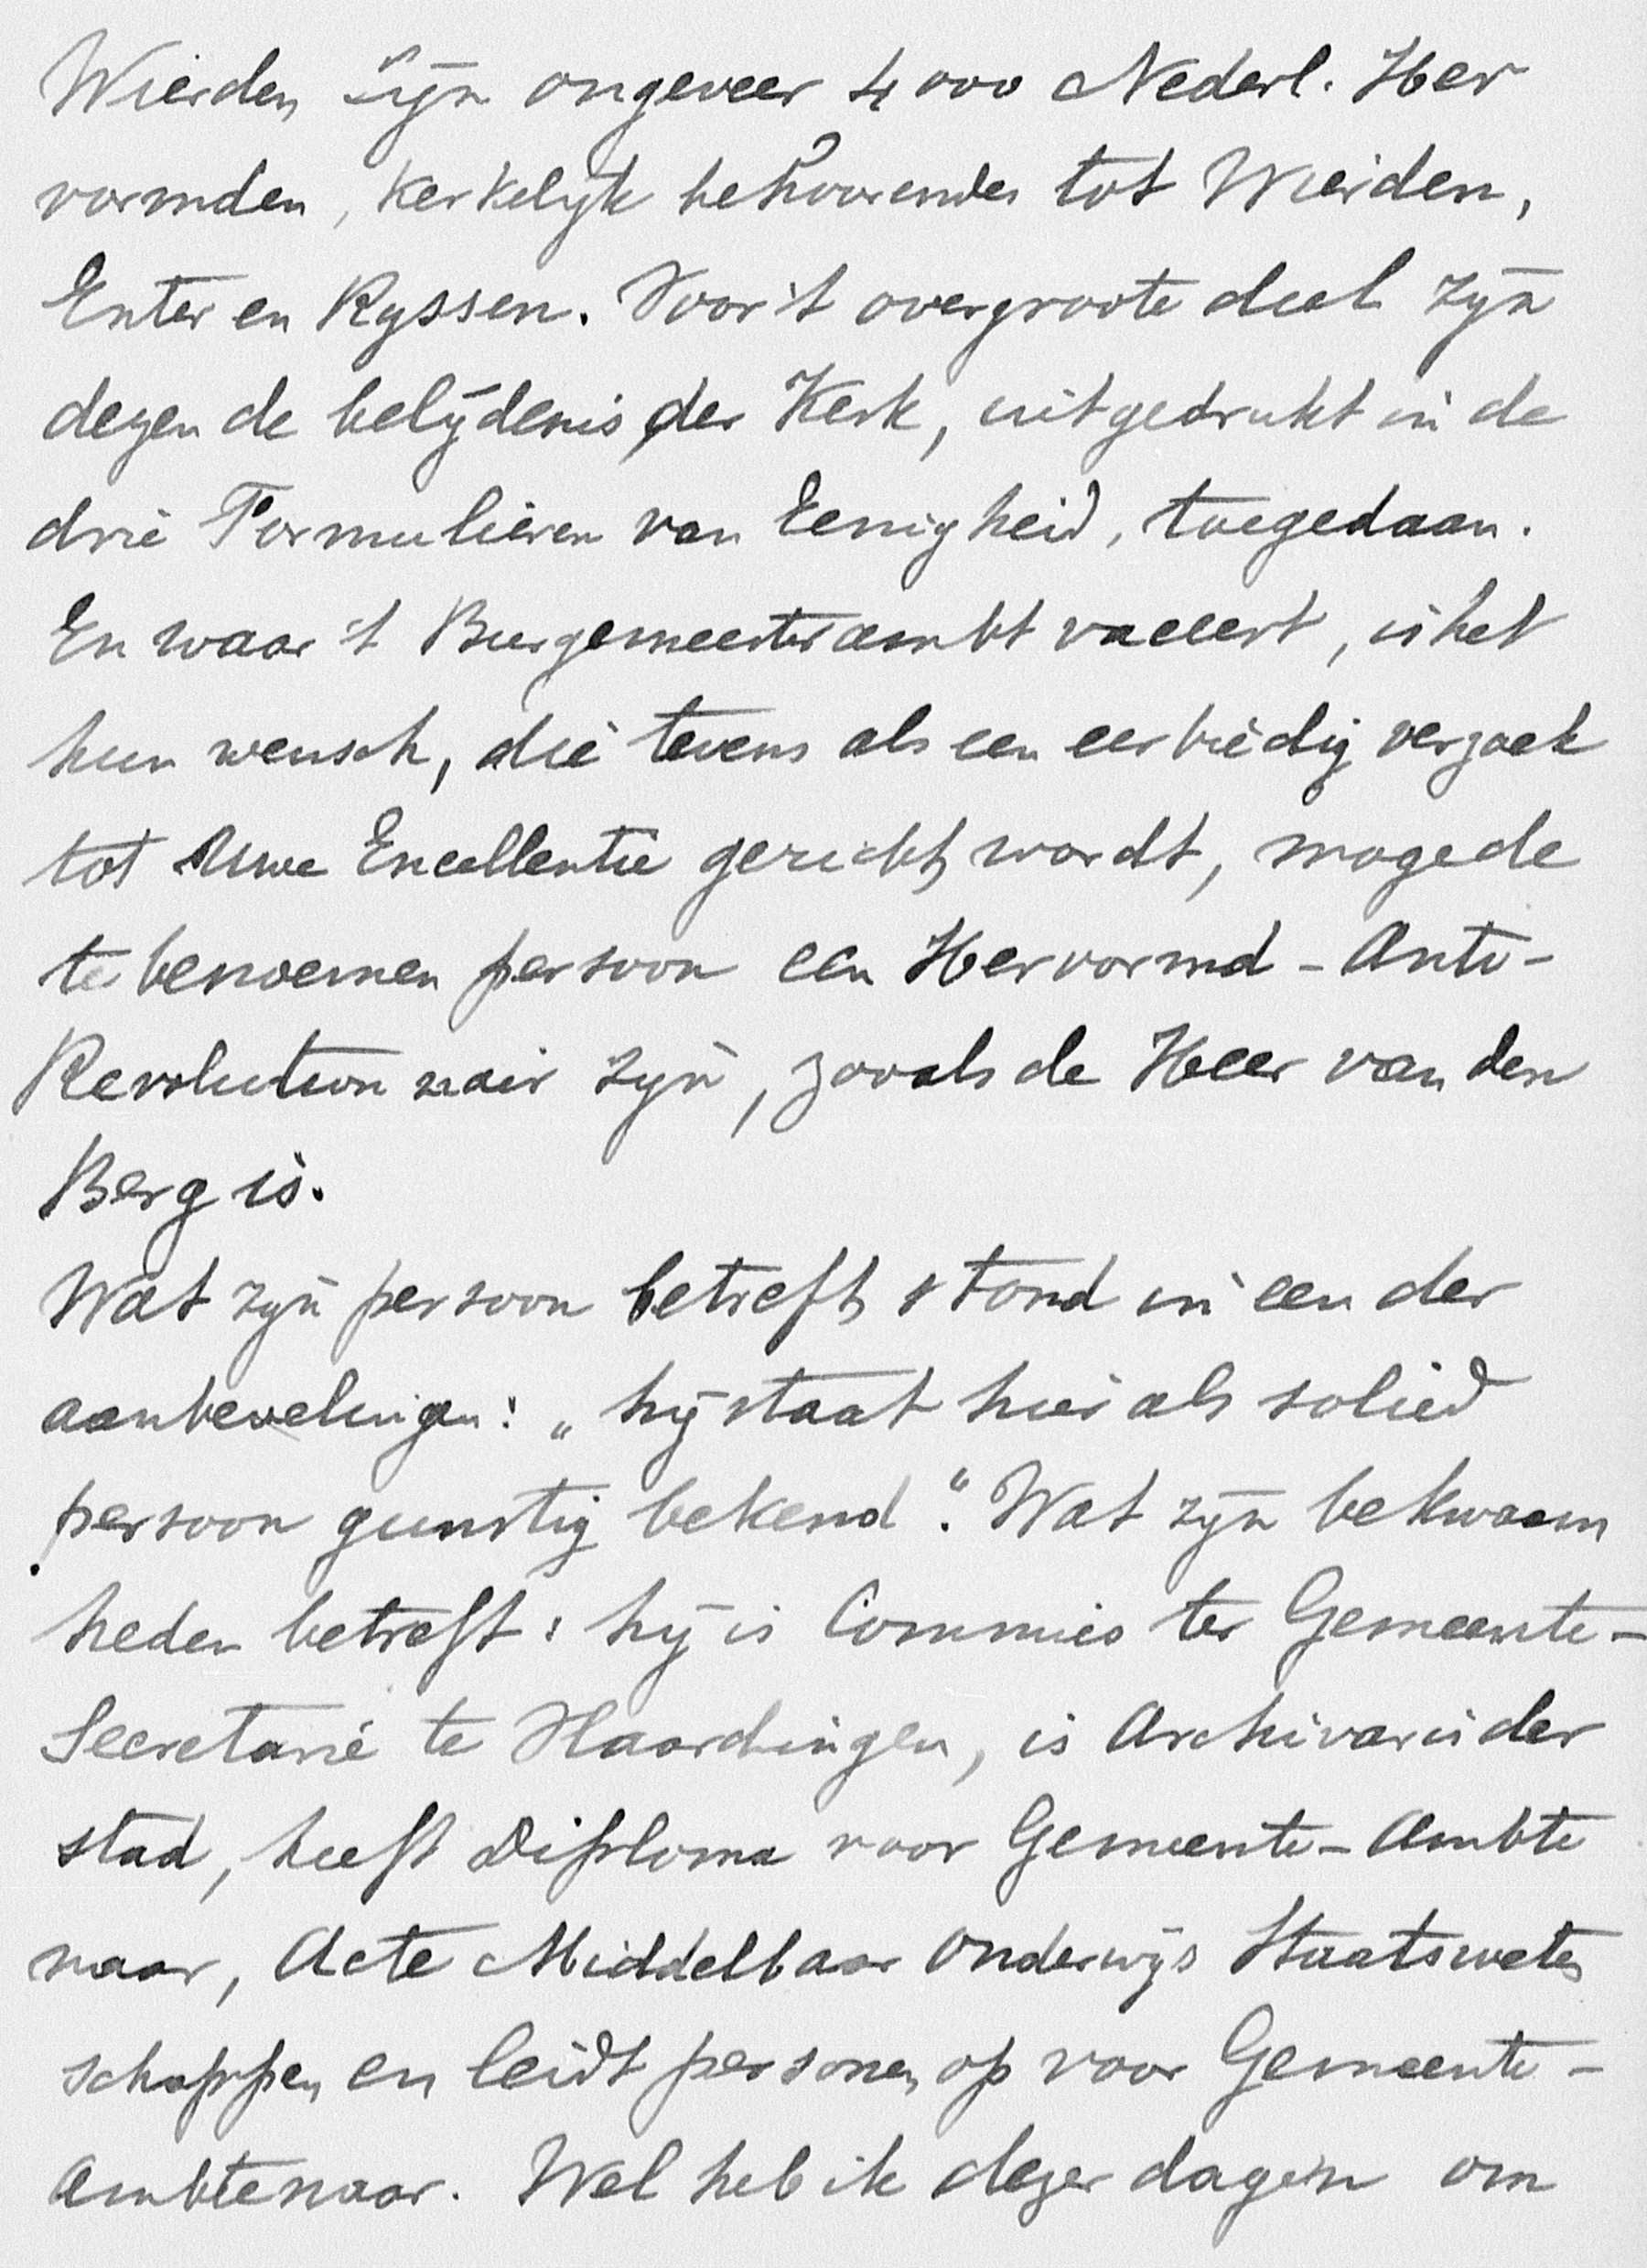 Wierden zijn ongeveer 4000 Nederl. Her
vormden, kerkelijk behoorende tot Wierden,
Enter en Ryssen. Voor 't overgroote deel zijn
dezen de belijdenis der Kerk, uitgedrukt in de
drie Formulieren van Eenigheid, toegedaan.
En waar 't Burgemeesterambt vaceert, is het
hun wensch, die tevens als een eerbiedig verzoek
tot Uwe Excellentie gericht wordt, moge de
te benoemen persoon een Hervormd - Anti-
Revolutionnair zijn, zooals de Heer van den
Berg is.
Wat zijn persoon betreft, stond in een der
aanbevelingen: „hij staat hier als solied
persoon gunstig bekend". Wat zijn bekwaam
heden betreft: hij is Commies ter Gemeente-
Secretarie te Vlaardingen, is Archivaris der
stad, heeft Diploma voor Gemeente-Ambte
naar, Acte Middelbaar Onderwijs Staatsweten
schappen en leidt personen op voor Gemeente-
Ambtenaar. Wel heb ik dezer dagen om